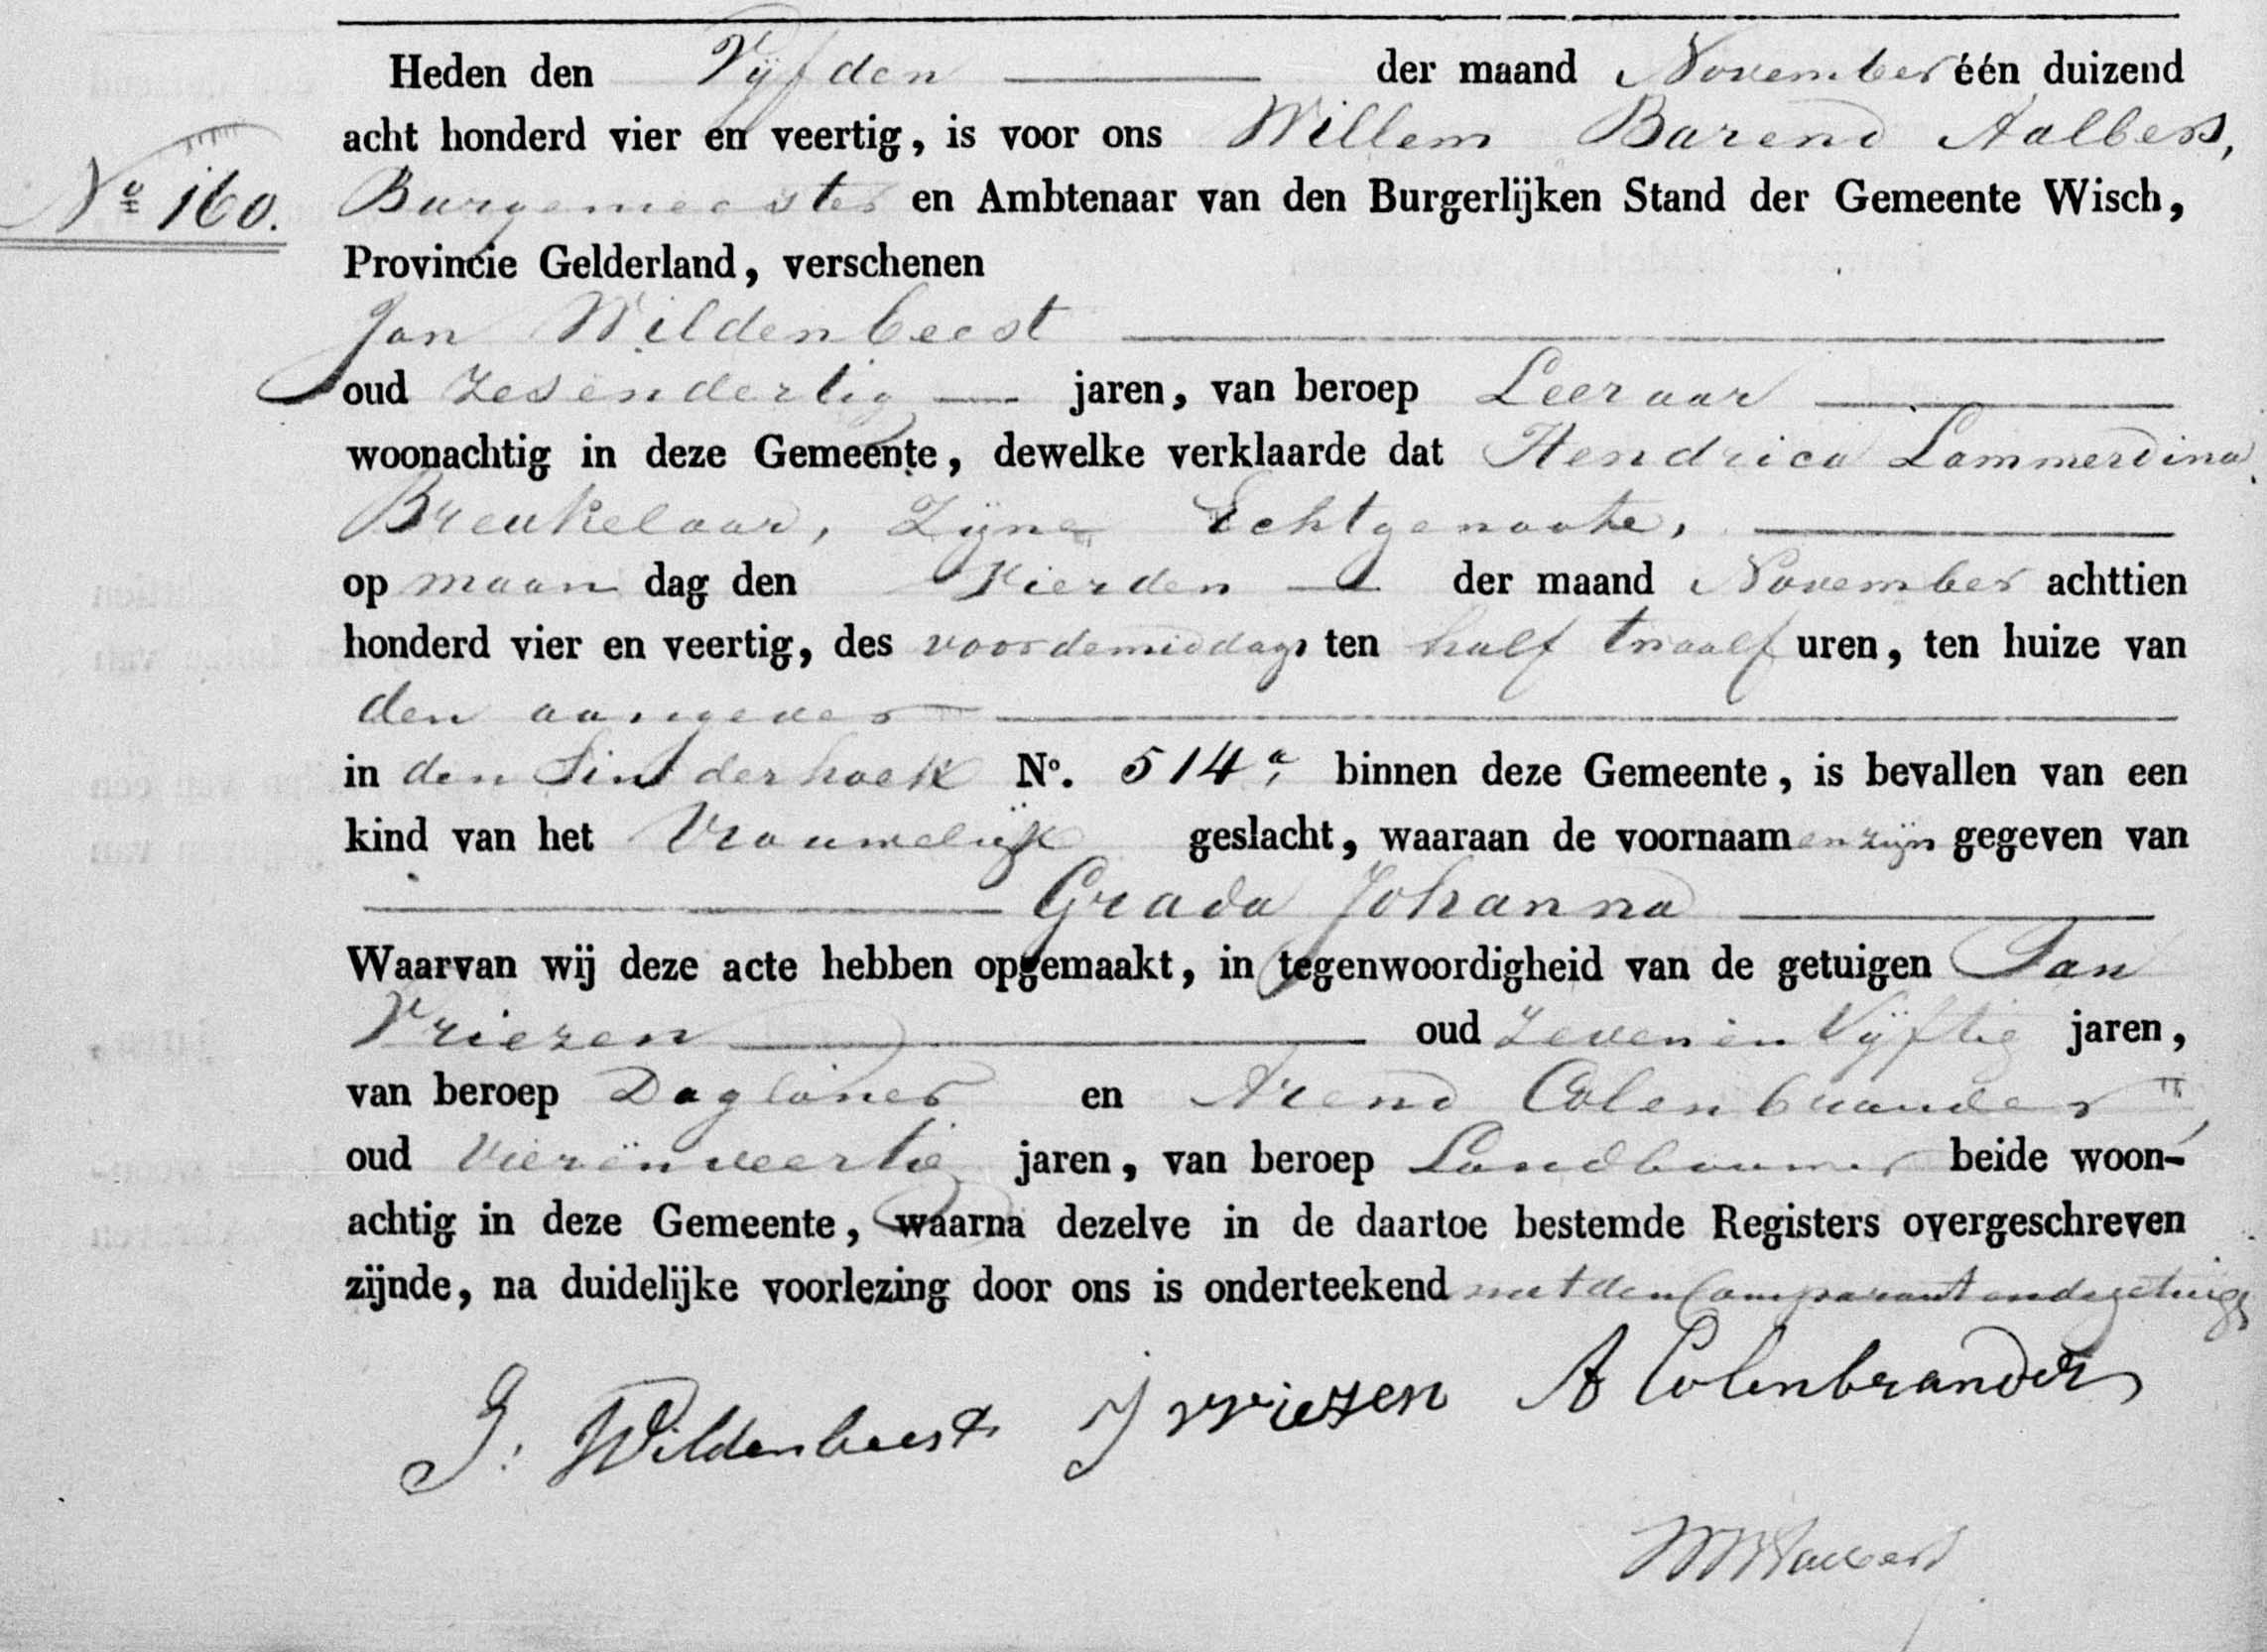 Heden den Vijfden der maand November één duizend
acht honderd vier en veertig, is voor ons Willem Barend Aalbers,
No 160.
Burgemeester en Ambtenaar van den Burgerlijken Stand der Gemeente Wisch,
Provincie Gelderland, verschenen
Jan Wildenbeest
oud zesendertig jaren, van beroep Leeraar
woonachtig in deze Gemeente, dewelke verklaarde dat Hendrica Lammerdina
Breukelaar, Zijne Echtgenoote,
op maan dag den Vierden der maand November achttien
honderd vier en veertig, des voordemiddags ten half twaalf uren, ten huize van
den aangever
in den Sinderhoek No. 514a, binnen deze Gemeente, is bevallen van een
kind van het Vrouwelijk geslacht, waaraan de voornaamen zijn gegeven van
Grada Johanna
Waarvan wij deze acte hebben opgemaakt, in tegenwoordigheid van de getuigen Jan
Vriezen oud Zevenën Vijftig jaren,
van beroep Dagloner en Arend Colenbrander
oud Vierënveertig jaren, van beroep Landbouwer beide woon-
achtig in deze Gemeente, waarna dezelve in de daartoe bestemde Registers overgeschreven
zijnde, na duidelijke voorlezing door ons is onderteekend met den Comparant en de getuigs
J. Wildenbeest J vriezen A Colenbrander
WBAalbers